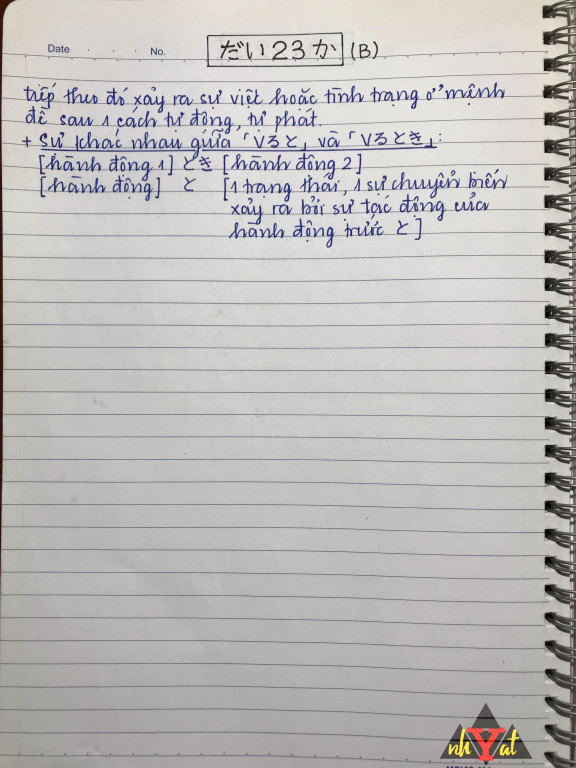 Date . . . No.
だい23か (B)
tiếp theo đó xảy ra sự việt hoặc tình trạng ở mệnh
đề sau 1 cách tự động, tự phát.
+ Sự khác nhau giữa 「Vると」 và 「Vるとき」:
[hành động 1] とき [hành động 2]
[hành động] と [1 trạng thái, 1 sự chuyển biến
xảy ra bởi sự tác động của
hành động trước と]
nhYat